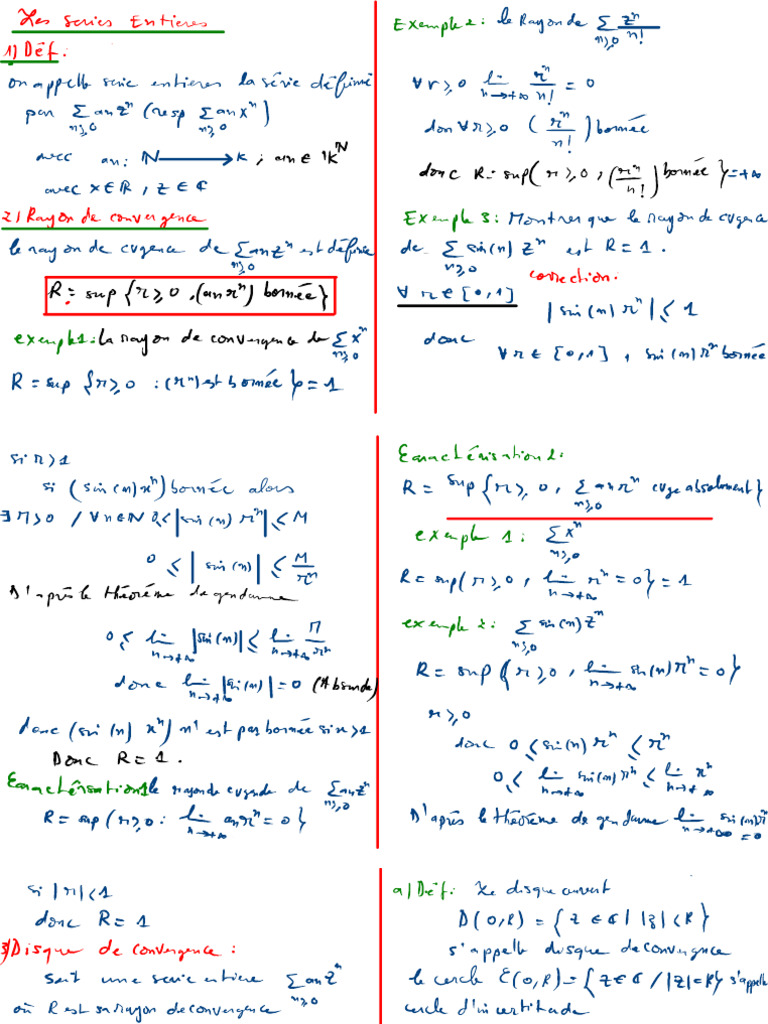 Les series Entieres
1) Déf:
on appelle serie entieres la série définie
par ∑_{n≥0} anzⁿ (resp ∑_{n≥0} anxⁿ)
avec an: ℕ → K ; an ∈ 𝕂^ℕ
avec x∈ℝ, z ∈ ℂ
2) Rayon de convergence
le rayon de cvgence de ∑_{n≥0} anzⁿ est définie
R = sup {r≥0, (anrⁿ) bornée}
exemple1: la rayon de convergence de ∑_{n≥0} xⁿ
R = sup {r≥0 : (rⁿ) est bornée} = 1
Exemple2: le Rayon de ∑_{n≥0} zⁿ/n!
∀r≥0 lim_{n→+∞} rⁿ/n! = 0
don ∀r≥0 (rⁿ/n!) bornée
donc R = sup{r≥0, (rⁿ/n!) bornée} = +∞
Exemple 3: Montrer que le rayon de cvgence
de ∑_{n≥0} sin(n) zⁿ est R = 1.
correction:
∀ r ∈ [0,1]
|sin(n) rⁿ| ≤ 1
donc
∀r∈ [0,1], sin(n)rⁿ bornée
si r>1
si (sin(n)rⁿ) bornée alors
∃M>0 / ∀n∈ℕ 0≤|sin(n) rⁿ| ≤ M
0 ≤ |sin(n)| ≤ M/rⁿ
D'après le théorème de gendarme
0 ≤ lim_{n→+∞} |sin(n)| ≤ lim_{n→+∞} M/rⁿ
donc lim_{n→+∞} |sin(n)| = 0 (Absurde)
donc (sin(n) rⁿ) n'est pas bornée si r>1
Donc R = 1.
Caractérisation1 le rayon de cvgence de ∑_{n≥0} anzⁿ
R = sup{r≥0 : lim_{n→+∞} anrⁿ = 0}
Caractérisation2:
R = sup{r≥0, ∑_{n≥0} anrⁿ cvge absolument}
exemple 1: ∑_{n≥0} xⁿ
R = sup{r≥0, lim_{n→+∞} rⁿ = 0} = 1
exemple 2: ∑_{n≥0} sin(n)zⁿ
R = sup{r≥0, lim_{n→+∞} sin(n)rⁿ = 0}
r≥0
donc 0 ≤ sin(n) rⁿ ≤ rⁿ
0 ≤ lim_{n→+∞} sin(n)rⁿ ≤ lim_{n→+∞} rⁿ
D'après le théorème de gendarme lim_{n→+∞} sin(n)rⁿ = 0
si |r|<1
donc R = 1
3) Disque de convergence:
soit une serie entiere ∑_{n≥0} anzⁿ
où R est sa rayon de convergence
a) Déf: Le disque ouvert
D(0,R) = {z ∈ ℂ / |z| < R}
s'appelle disque de convergence
le cercle C(0,R) = {z∈ℂ / |z| = R} s'appelle
cercle d'incertitude